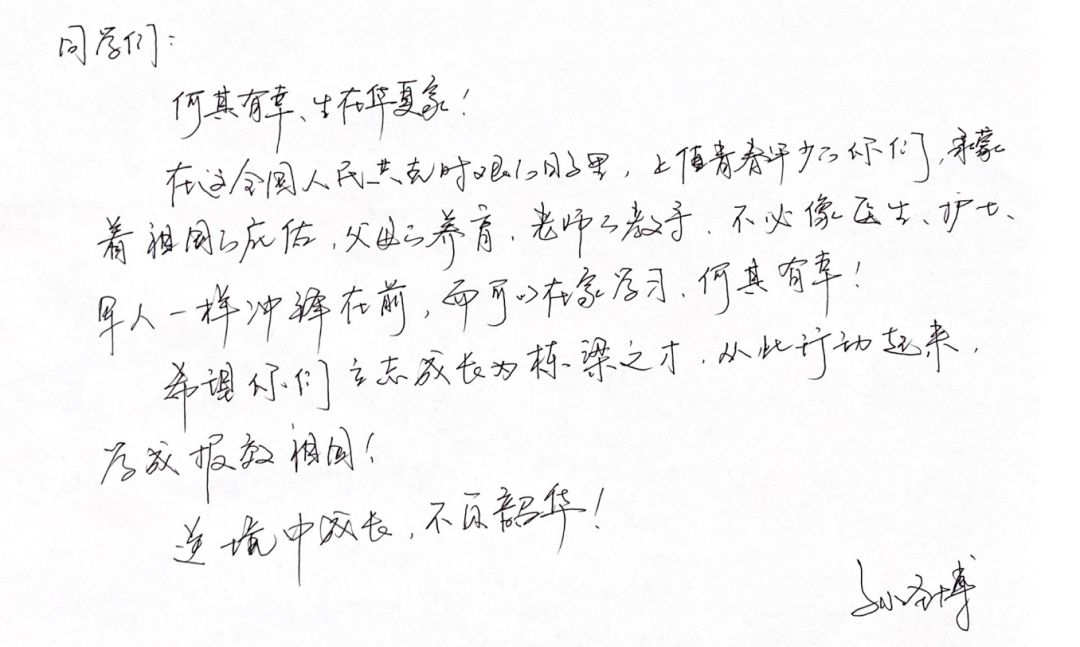 同学们：
何其有幸、生在华夏家！
在这全国人民共克时艰的日子里，正值青春年少的你们，承蒙
着祖国的庇佑，父母的养育，老师的教导，不必像医生、护士、
军人一样冲锋在前，而可以在家学习，何其有幸！
希望你们立志成长为栋梁之才，从此行动起来，
学成报效祖国！
逆境中成长，不负韶华！
孙圣博